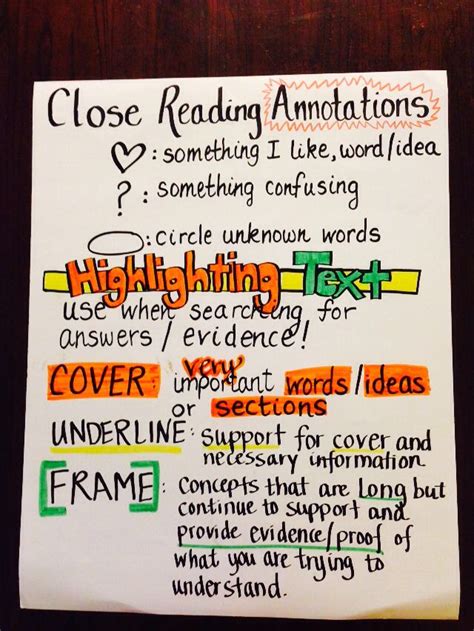 Close Reading Annotations
: something I like, word/idea
? : something confusing
: circle unknown words
Highlighting Text
use when searching for
answers / evidence!
COVER: very important words/ideas
or sections
UNDERLINE: support for cover and
necessary information
[FRAME]: Concepts that are Long but
continue to support and
provide evidence/proof of
what you are trying to
understand.